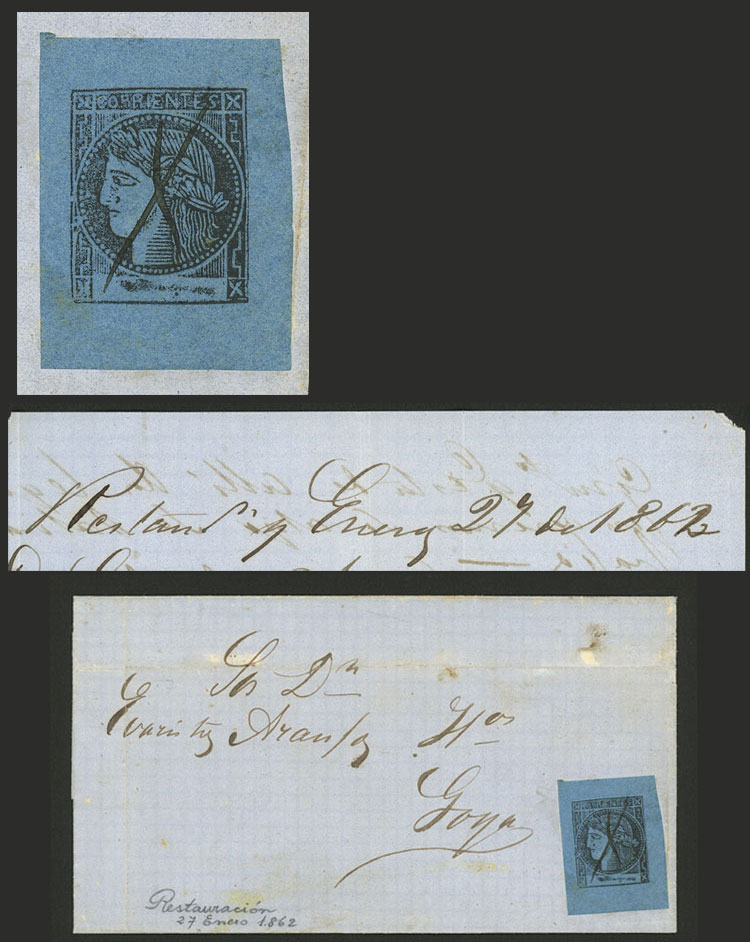 CORRIENTES
Restaurn y Enero 27 de 1862
Sor Dn
Evaristo Araujo Hos
Goya
CORRIENTES
Restauración
27 Enero 1862